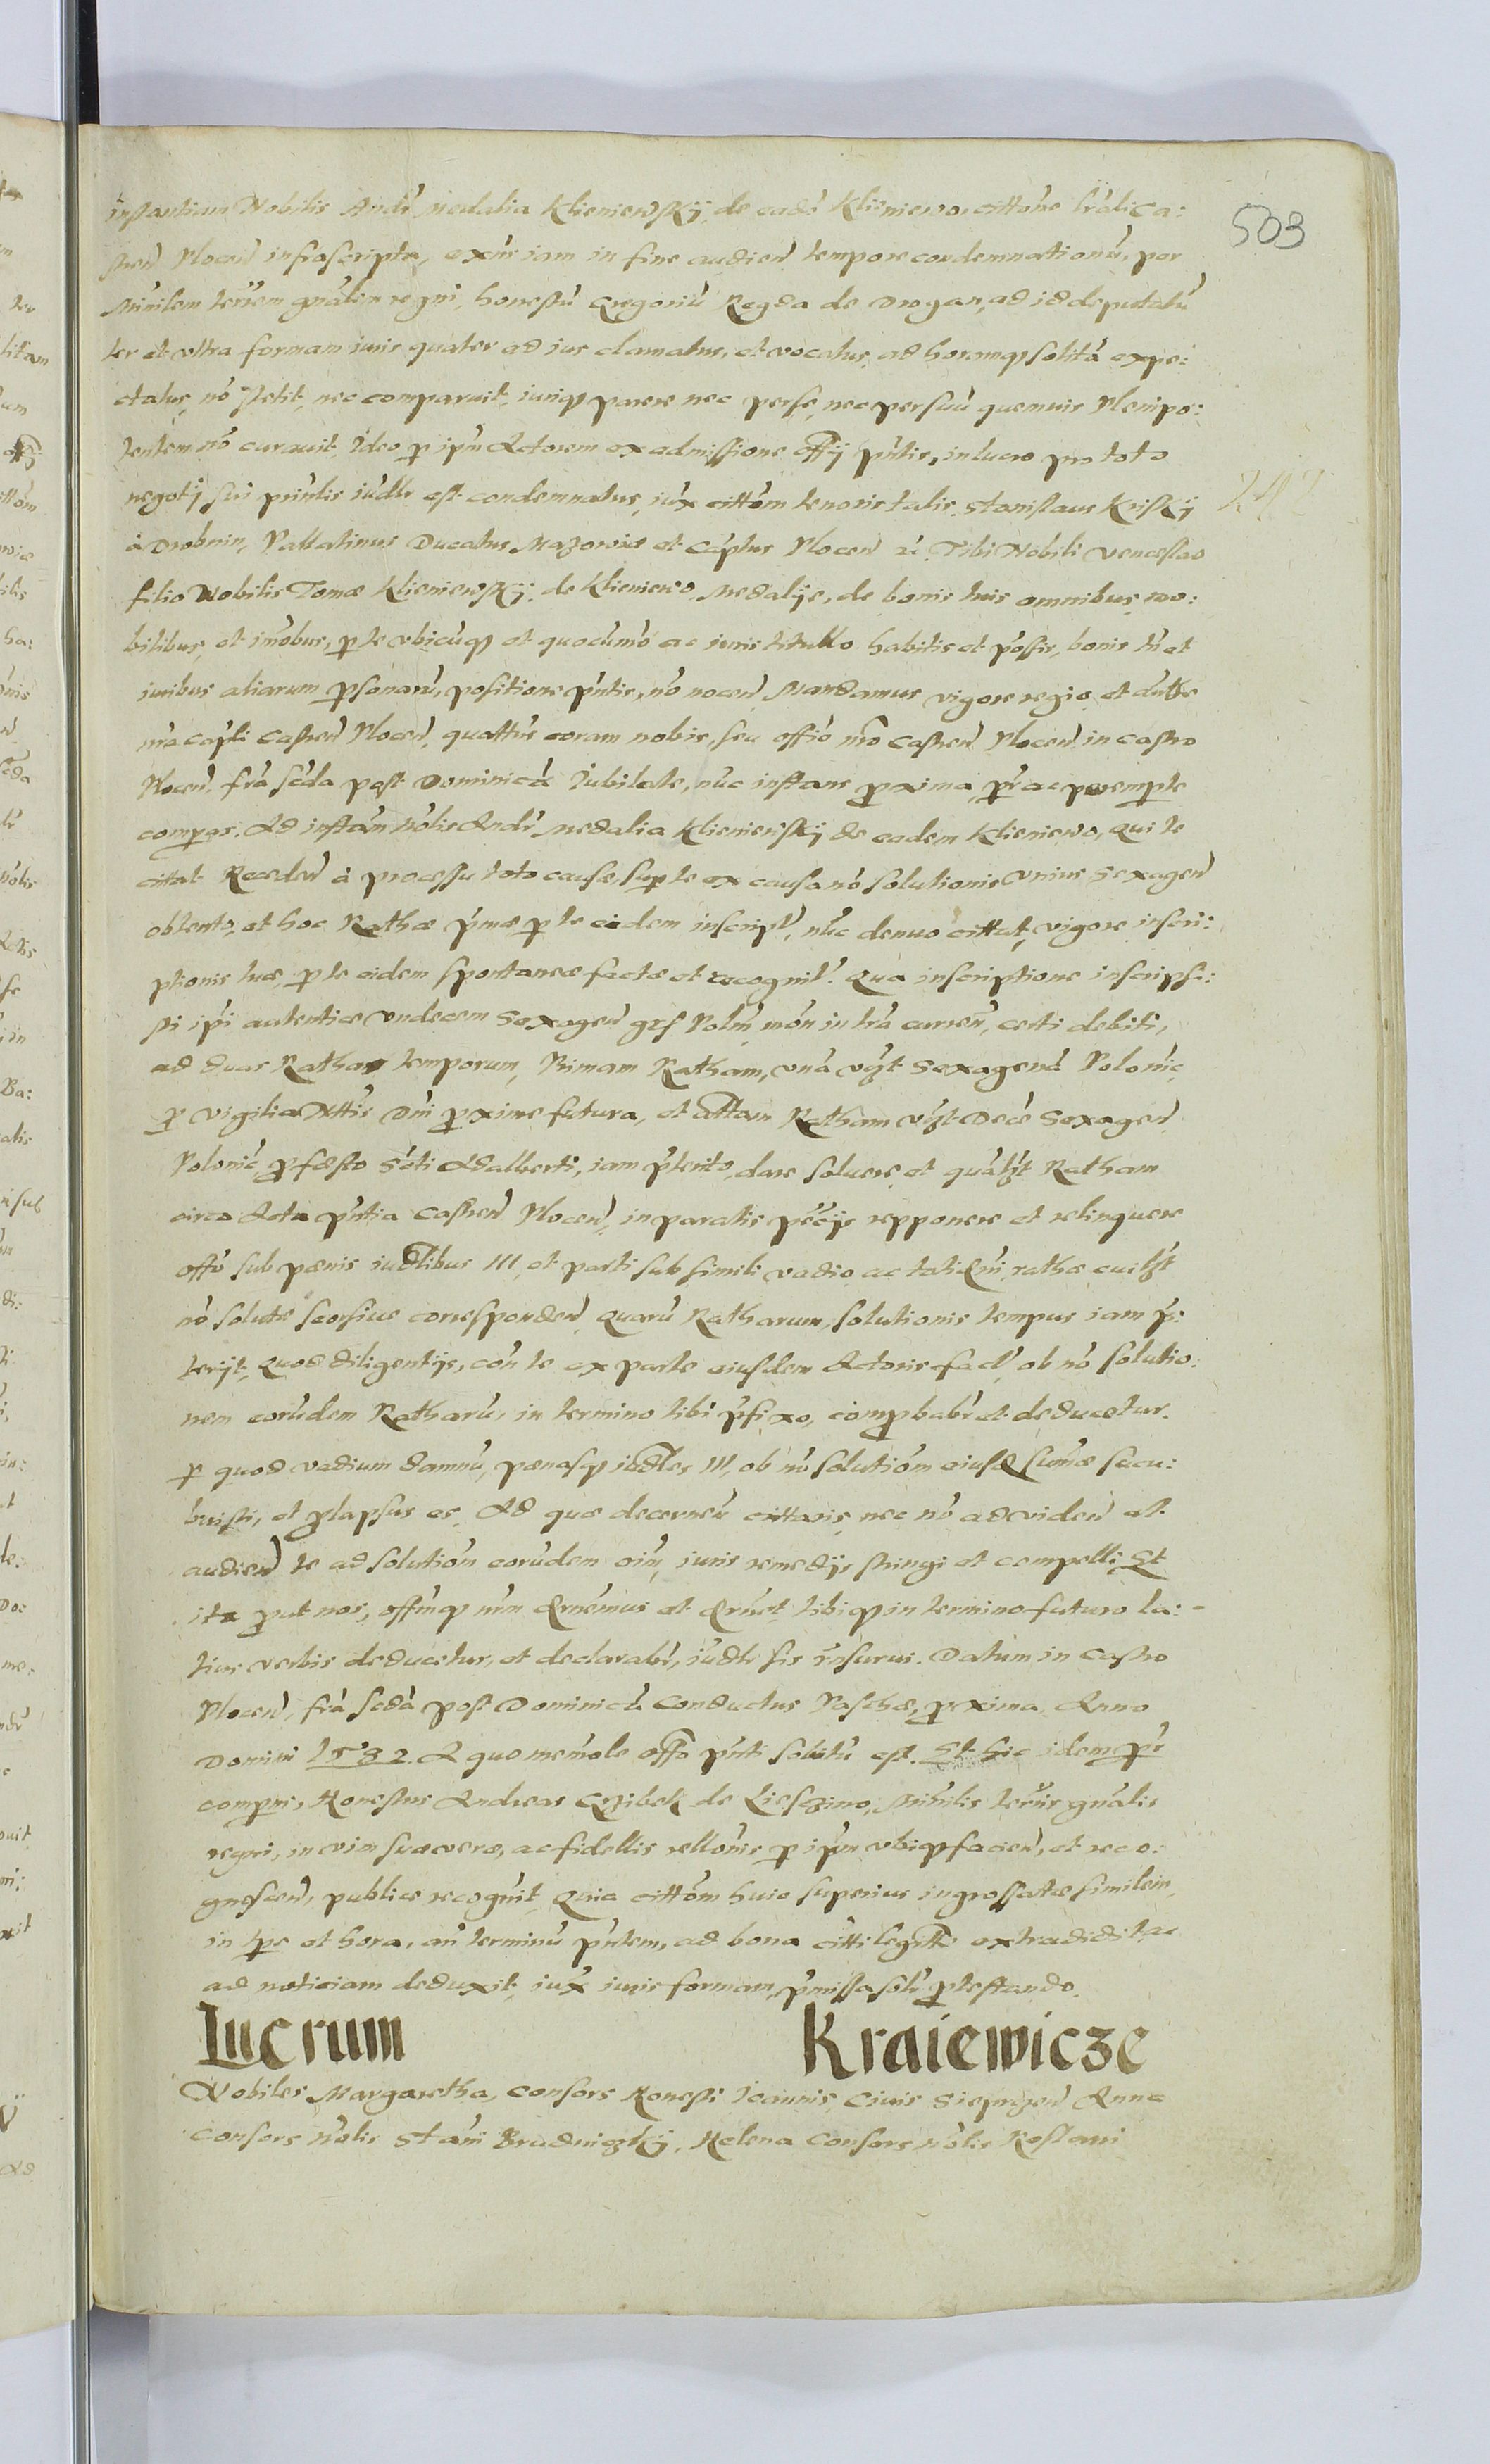 503
instantiam Nobilis Andr̃ Medalia Klieniewskij, de eadẽ Klieniewo, cittõne lr̃ali ca:
stren̄ Plocen̄ infrascripta, ex̃ns iam in fine audien̄ tempore condemnationũ, per
Ministrem terr̃em gñalem regni, honestũ Gregoriũ Regda de Drogan, ad id deputatũ
ter et ultra formam iuris quater ad ius clamatus, et vocatus, ad horamq̃ solitã expe:
ctatus, nõ stetit, nec comparuit, iuriq̃ parere nec per se, nec per suũ quemvis Plenipo:
tentem nõ curavit. Ideo p ip̃m Actorem ex admissione offij p̃ntis, in lucro pro toto
negotij sui prin̄lis iudlr est condemnatus, iux̃ cittõm tenoris talis. Stanislaus Kriskij
à Drobnin, Pallatinus Ducatus Mazoviæ et Cap̃tus Plocen̄ &c̃ Tibi Nobili Venceslao
filio Nobilis Tomæ Klieniewskij, de Klieniewo Medalije, de bonis tuis omnibus mo:
bilibus, et im̃obus, p te ubicũq̃ et quocũmõ ac iuris titullo habitis et possis, bonis tñ et
iuribus aliarum p̃sonarũ, positione p̃ntis, nõ nocen̄ Mandamus vigore regio et
nr̃a cap̃li Castren̄ Plocen̄, quattũs coram nobis, seu offiõ nr̃o Castren̄ Plocen̄ in castro
Plocen̄ fr̃ã scd̃a post Dominicã Iubilate, nũc instans proxima, p̃r ac peremp̃te
compas. Ad instañ Nõlis Andr̃ Medalia Klieniewskij de eadem Klieniewo, Qui te
cittat Receden̄ à processu toto causæ, sup te ex causa nõ solutionis unius Sexagen̄
obtento, et hoc Rathæ p̃mæ p te eidem inscript̃, nũc denuo cittat, vigore inscri:
ptionis tuæ, p te eidem spontanee factæ et recognit̃. Qua inscriptione inscripsi:
sti ip̃i autentice undecem Sexagen̄ grs Polñ mõn in tr̃a curren̄, certi debiti,
ad duas Rathas temporum, Primam Ratham, unã vz̃t Sexagenã Polonic̃
p vigilia Dñi proxime futura, et alt̃am Ratham vz̃t Decẽ Sexagen̄
Polonic̃, pro fæsto Sc̃ti Adalberti, iam p̃terito, dare solvere, et quãlz̃t Ratham
circa Acta p̃ntia Castren̄ Plocen̄, in paratis pec̃ijs repponere et relinquere
offõ sub pænis iudlibus III, et parti sub simili vadio ac rathæ cuilz̃t
nõ solutæ seorsive corresponden̄ Quarũ Ratharum, solutionis tempus iam p̃:
terijt, Quod diligentijs, cõn te ex parte eiusdem Actoris fact̃ ob nõ solutio:
nem eorũdem Ratharũ, in termino tibi p̃fixo, comprobabr̃ et deducetur.
p quod vadium damnũ, pænasq̃ iudles III, ob nõ solutiõm eiusd̃ sum̃æ succu:
buisti, et prolapsus es. Ad quæ decernen̄ cittaris, nec nõ ad viden̄ et
audien̄ te ad solutiõm eorũdem oĩm, iuris remedijs stringi et compelli, Et
ita prout nos, offĩmq̃ nr̃m et tibiq̃ in termino futuro la:
tius verbis deducetur, et declarabr̃, iudlr sis r̃nsurus. Datum in Castro
Plocen̄, fr̃ã scd̃ã post Dominicã Conductus Paschæ, proxima, Anno
Domini 1582. A quo mem̃ole offõ p̃nti solutũ est. Et hic idem p̃r
comp̃ns, Honestus Andreas Czibek de Lieszino, Minilis terr̃is gñalis
regni, in vim suæ veræ, ac fidellis rellõnis p ip̃m ubiq̃ facien̄, et reco:
gnoscen̄, publice recogñit, Quia cittõm huic superius ingrossatæ similem
in tp̃e et hora, añ terminũ p̃ntem, ad bona citti legitt̃e extradidit ac
ad noticiam deduxit, iux̃ iuris formam, p̃missa solũ protestando.
Lucrum Kraiewicze
Nobiles Margaretha, consors Honesti Ioannis, Civis Sieprzen̄ Anna
consors Nõlis Stañi Brudniczkij, Helena Consors Nõlis Rostani